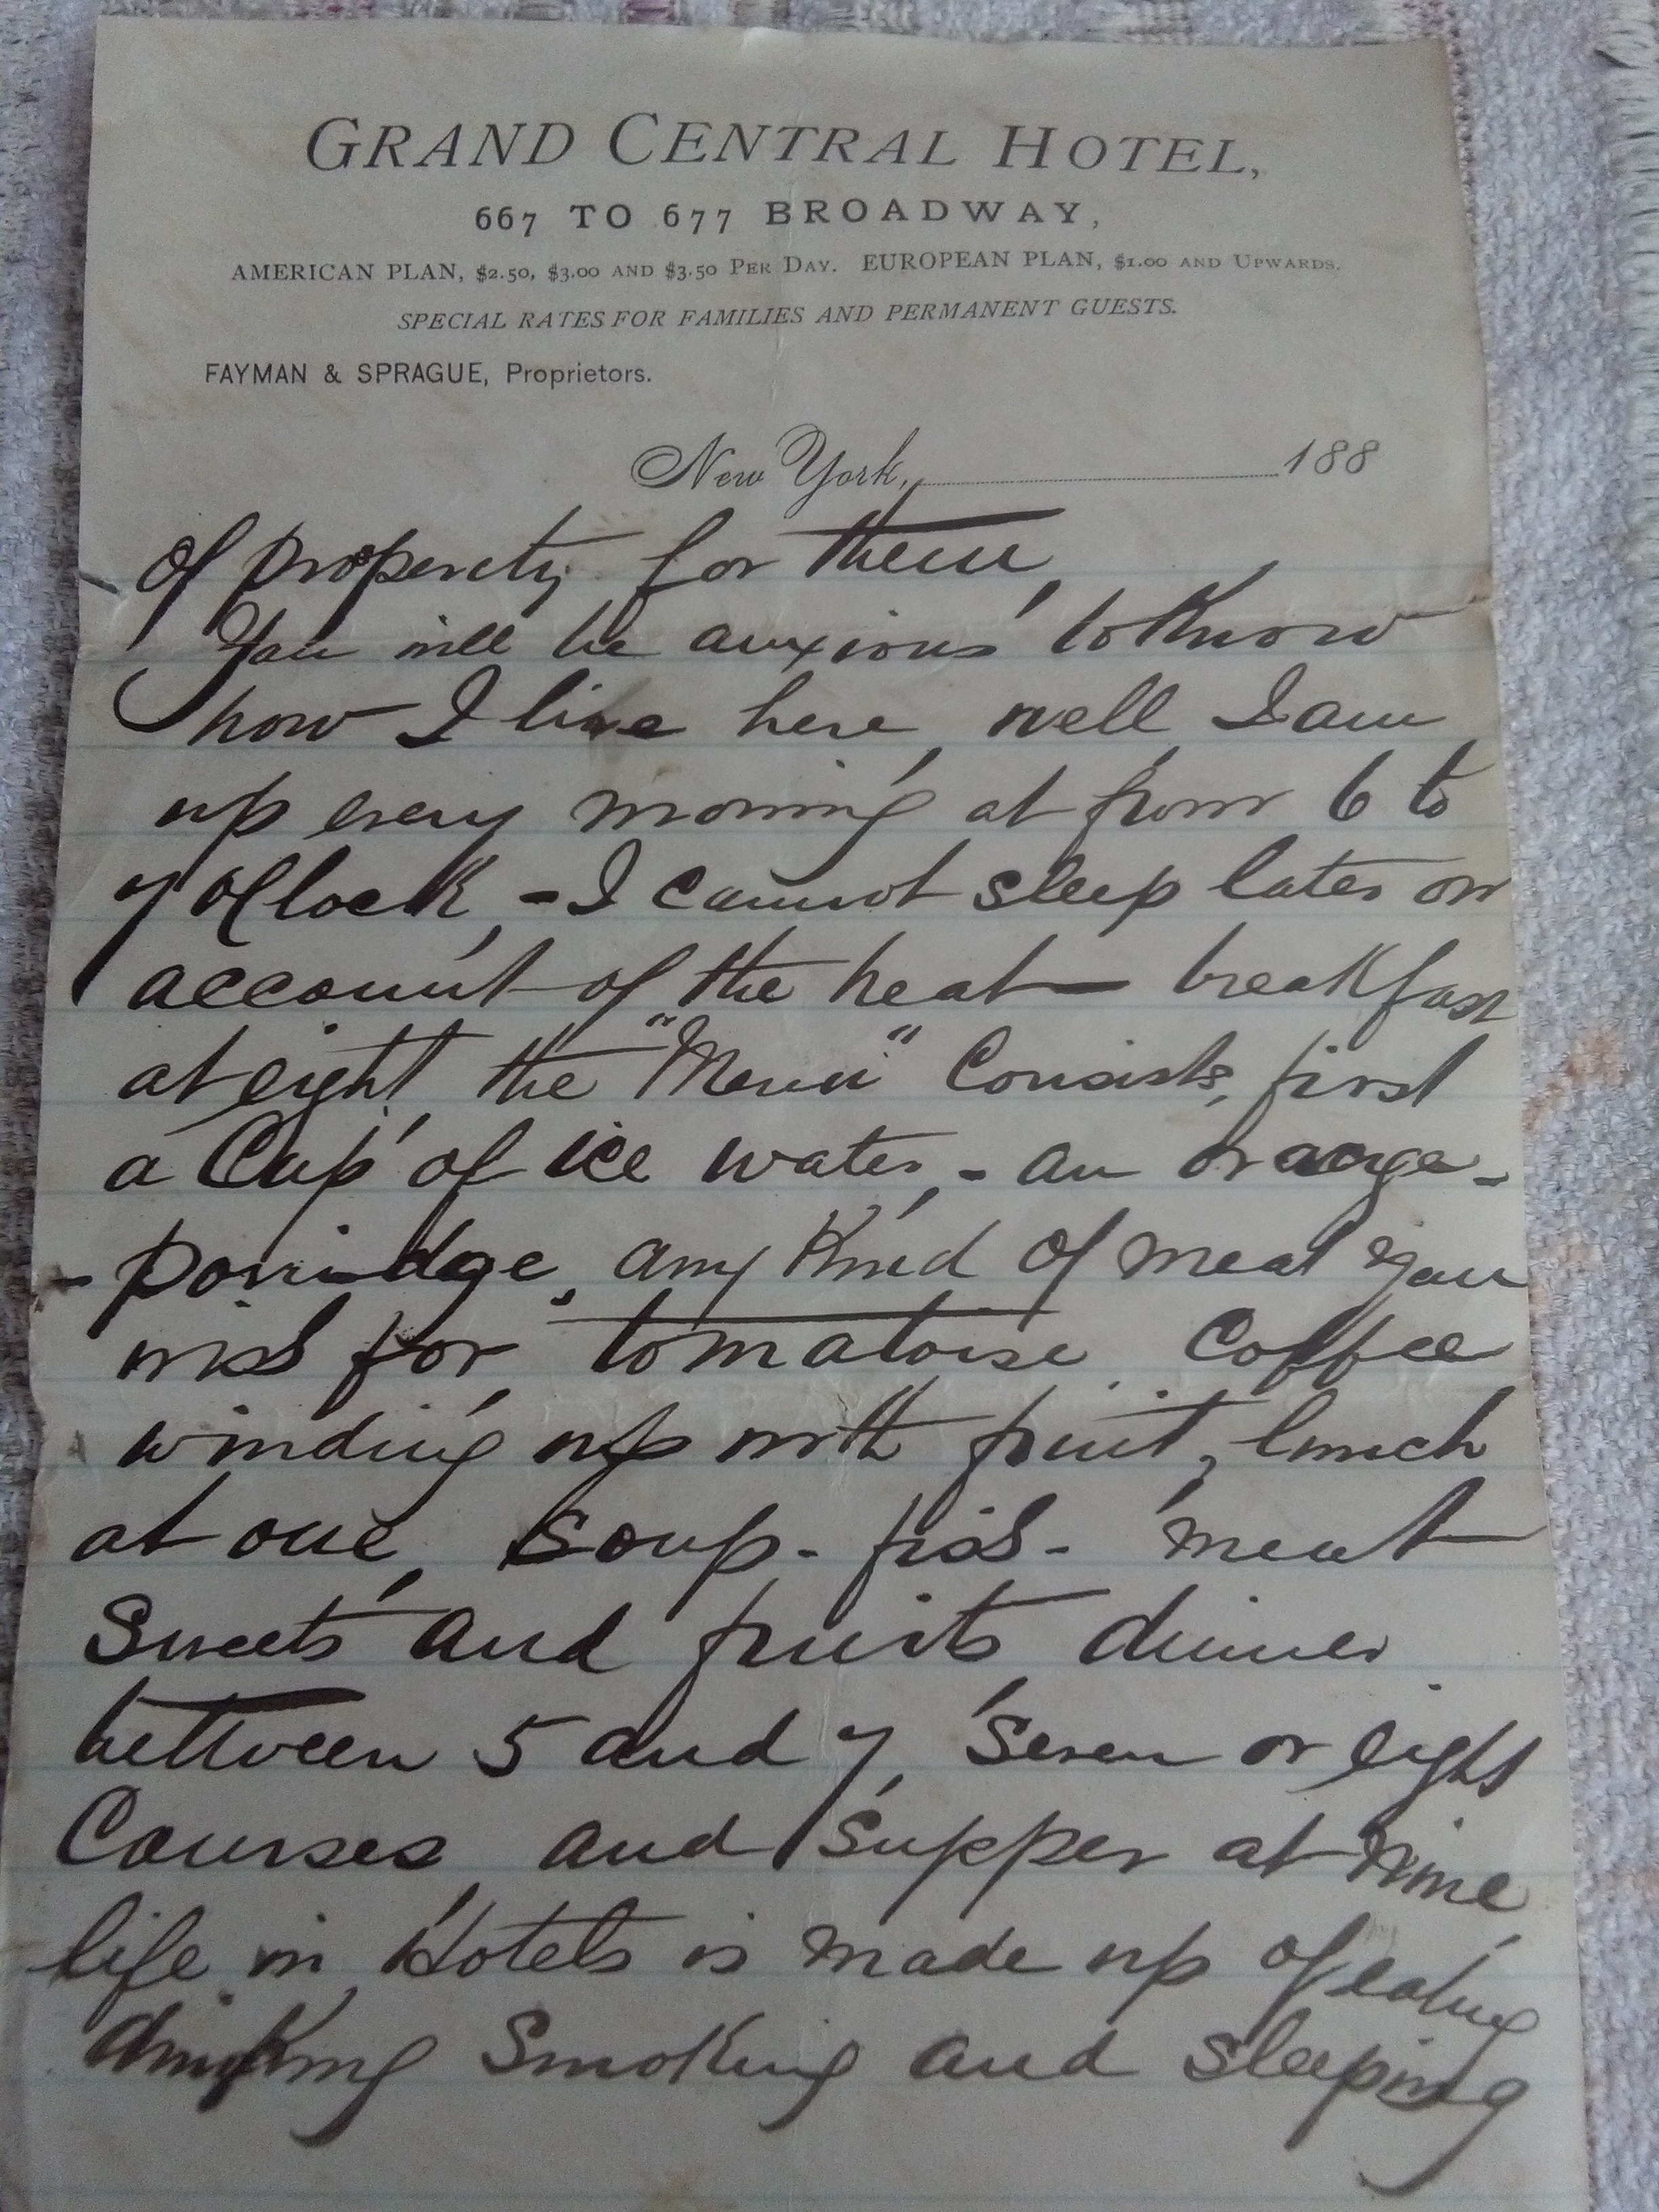 GRAND CENTRAL HOTEL,
667 TO 677 BROADWAY,
AMERICAN PLAN, $2.50, $3.00 AND $3.50 PER DAY. EUROPEAN PLAN, $1.00 AND UPWARDS.
SPECIAL RATES FOR FAMILIES AND PERMANENT GUESTS.
FAYMAN & SPRAGUE, Proprietors.
New York, 188
of property for them,
You will be anxious to Know
how I live here, well I am,
up every morning at from 6 to
7 O'Clock, - I cannot sleep later on
account of the heat - breakfast
at eight, the "Menu" Consists, first
a Cup of ice water, - an orange -
- porridge, any Kind of meat you
wish for, tomatoise, Coffee
winding up with fruit, lunch
at one, Soup - fish - meat
Sweets and fruits dinner
between 5 and 7, Seven or eight
Courses, and Supper at Nine,
life in Hotels is made up of eating
drinking Smoking and sleeping